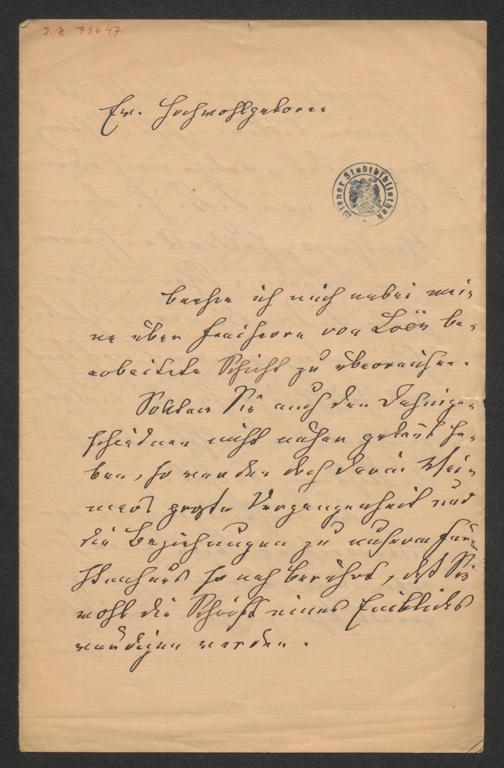 J. N. 73647
Ew. Hochwohlgeboren
Wiener Stadtbibliothek
beehre ich mich anbei mei-
ne über Freiherrn von Loën be-
arbeitete Schrift zu überreichen.
Sollten Sie auch dem Dahinge-
schiedenen nicht näher gekannt ha-
ben, so werden doch darin Wei-
mars große Vergangenheit und
die Beziehungen zu unserem Für-
stenhaus so nah berührt, daß Sie
wohl die Schrift eines Einblickes
würdigen werden.